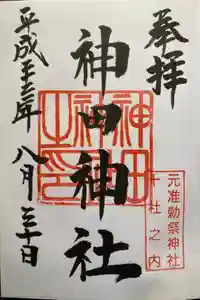 奉拝
元准勅祭神社
十社之内
神田神社
神田
神社
之印
平成二十三年八月三十日